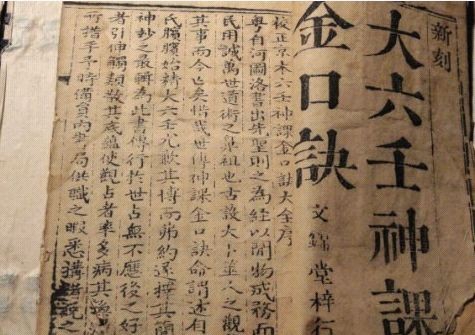 新刻
大六壬神課
金口訣
文錦堂梓行
校正京本六壬神課金口訣大全序
粵自河圖洛書出先聖則之為經以開物成務而
民用誠萬世道術之鼻祖也古設大卜筮人之觀
其事而今亡矣惜哉世傳神課金口訣命謂述有
氏臏臏始精大六壬尤歎其博而弗約遂擇其簡
神抄之最輯為此書傳行於世占無不應後之好
者引伸觸類發其底蘊使觀占者率多病其
可措手予時備員內局供職之暇悉搆諸說之